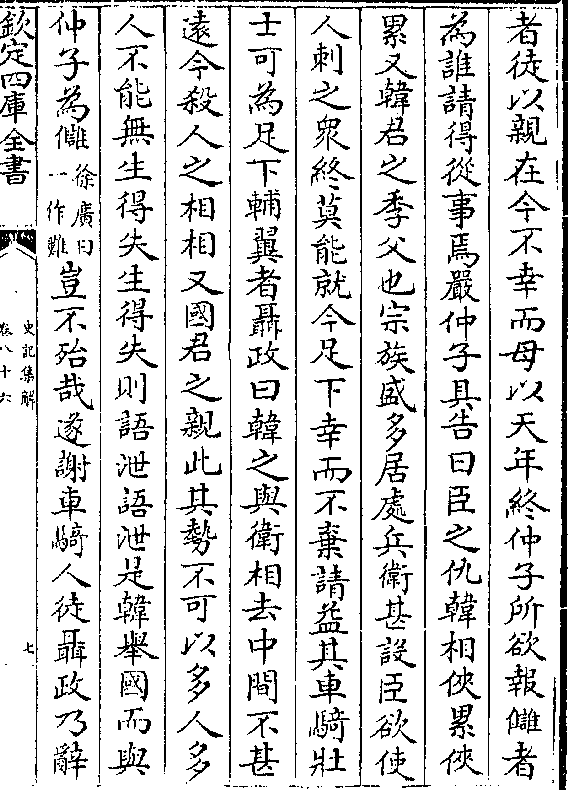 者徒以親在今不幸而母以天年終仲子所欲報讎者
為誰請得從事焉嚴仲子具告曰臣之仇韓相俠累俠
累又韓君之季父也宗族盛多居處兵衛甚設臣欲使
人刺之眾終莫能就今足下幸而不棄請益其車騎壯
士可為足下輔翼者聶政曰韓之與衛相去中間不甚
遠今殺人之相相又國君之親此其勢不可以多人多
人不能無生得失生得失則語泄語泄是韓舉國而與
仲子為讎徐廣曰一作難豈不殆哉遂謝車騎人徒聶政乃辭
欽定四庫全書
史記集解
卷八十六
七